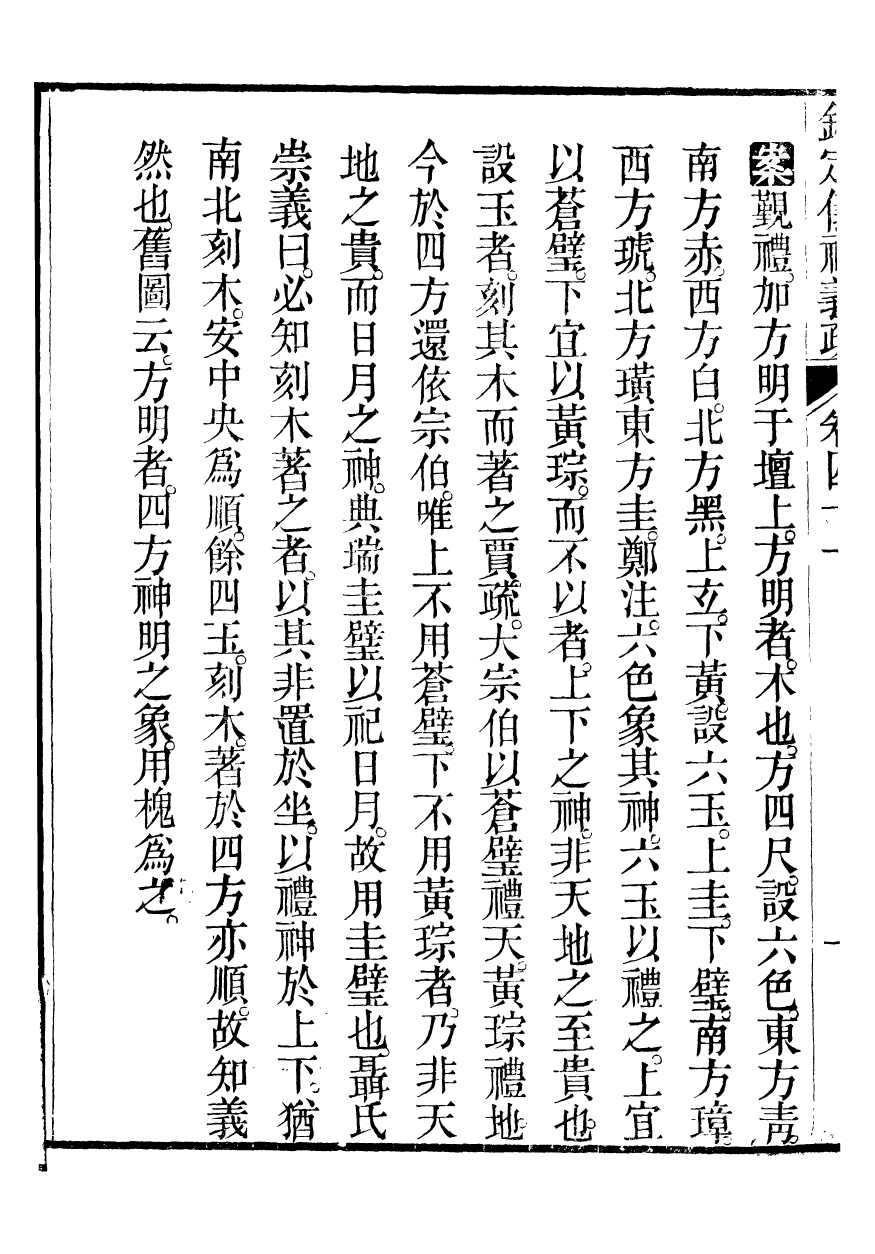 欽定儀禮義疏 卷四十一 一
案覲禮。加方明于壇上。方明者。木也。方四尺。設六色。東方靑。
南方赤。西方白。北方黑。上玄。下黃。設六玉。上圭。下璧。南方璋。
西方琥。北方璜。東方圭。鄭注。六色象其神。六玉以禮之。上宜
以蒼璧。下宜以黃琮。而不以者。上下之神。非天地之至貴也。
設玉者。刻其木而著之。賈疏。大宗伯以蒼璧禮天。黃琮禮地。
今於四方還依宗伯。唯上不用蒼璧。下不用黃琮者。乃非天
地之貴。而日月之神。典瑞圭璧以祀日月。故用圭璧也。聶氏
崇義曰。必知刻木著之者。以其非置於坐。以禮神於上下。猶
南北刻木。安中央爲順。餘四玉。刻木。著於四方亦順。故知義
然也。舊圖云。方明者。四方神明之象。用槐爲之。